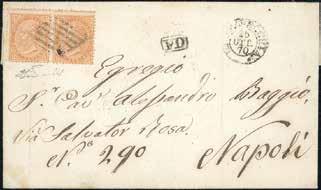 P.D.
Egregio
Sr. avv. Alessandro Baggio,
Via Salvator Rosa
No. 290
Napoli